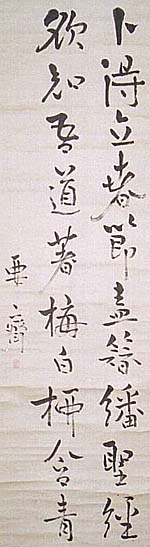 卜得立春節盍簪繙聖經
欲知吾道著梅白柳含青
要齋